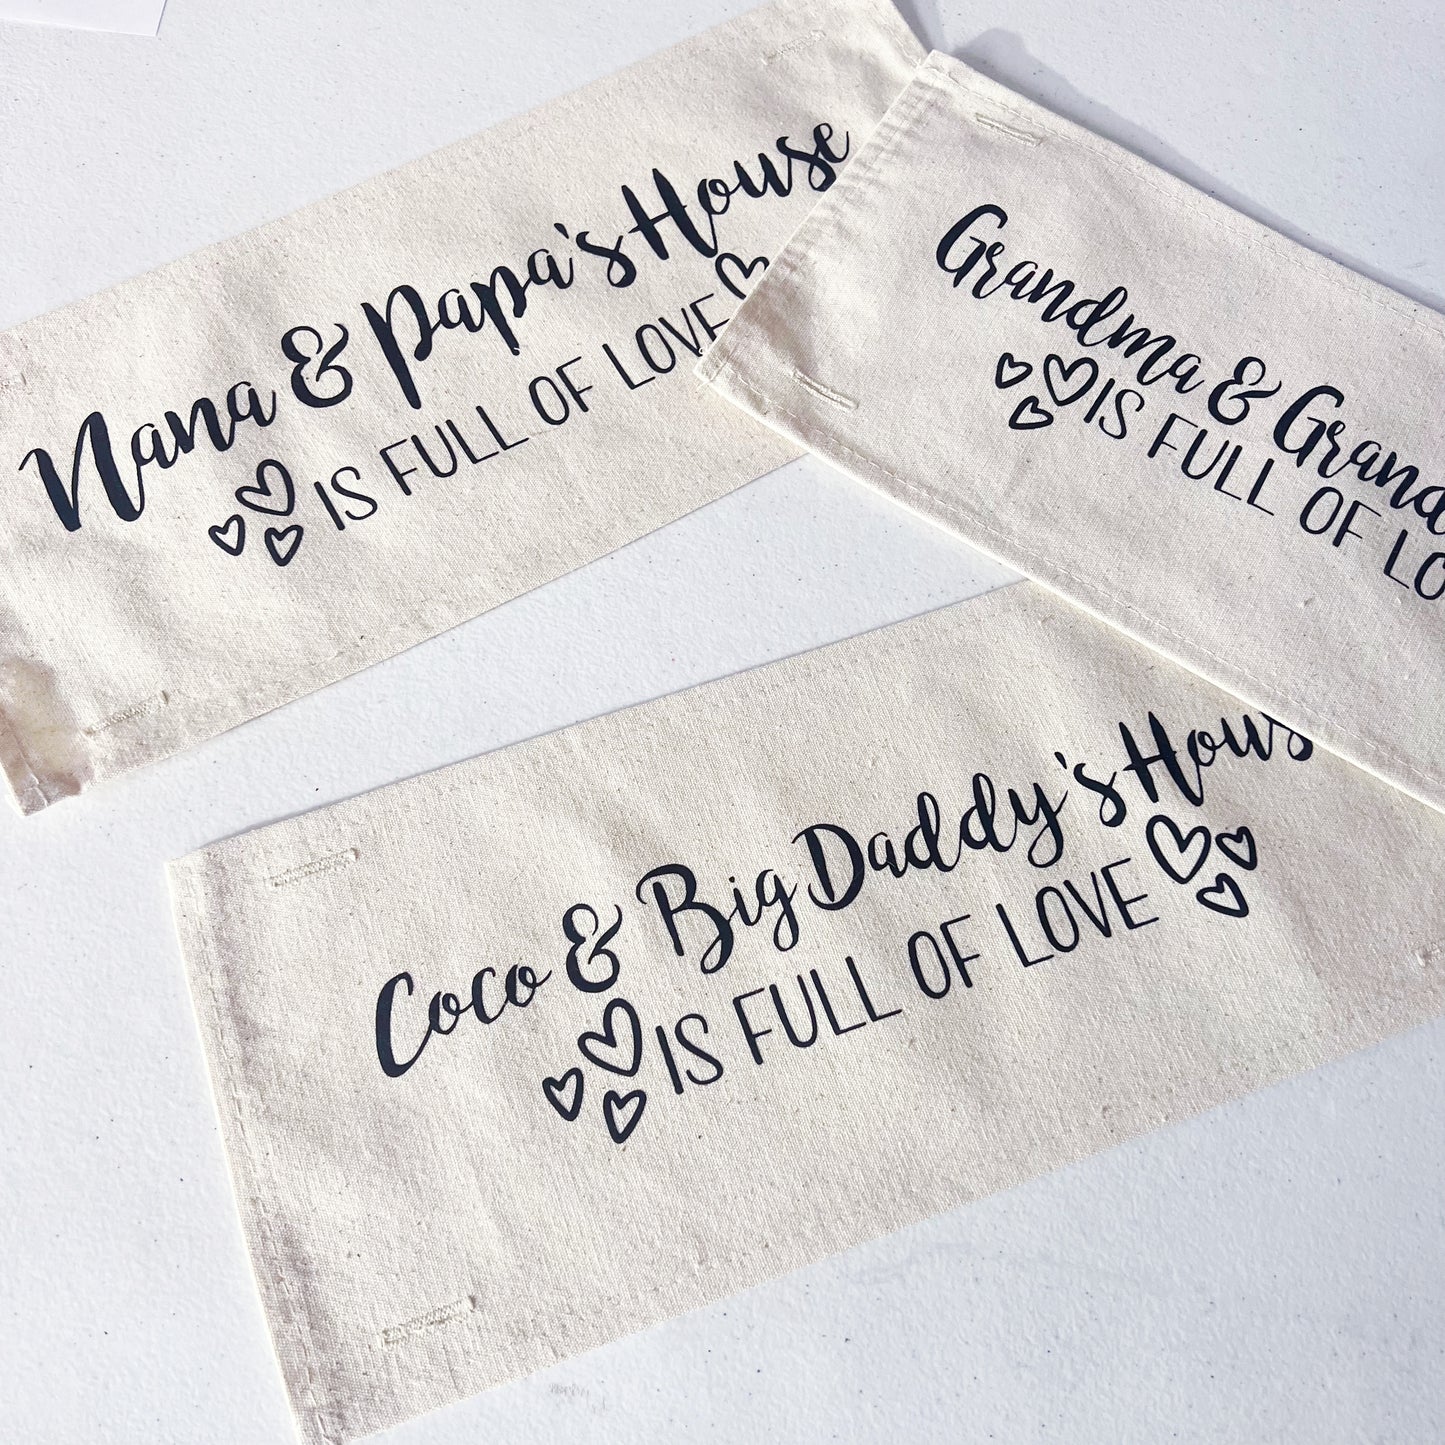 Nana & Papa's House
IS FULL OF LOVE
Grandma &
IS FULL OF
Coco & Big Daddy's
IS FULL OF LOVE